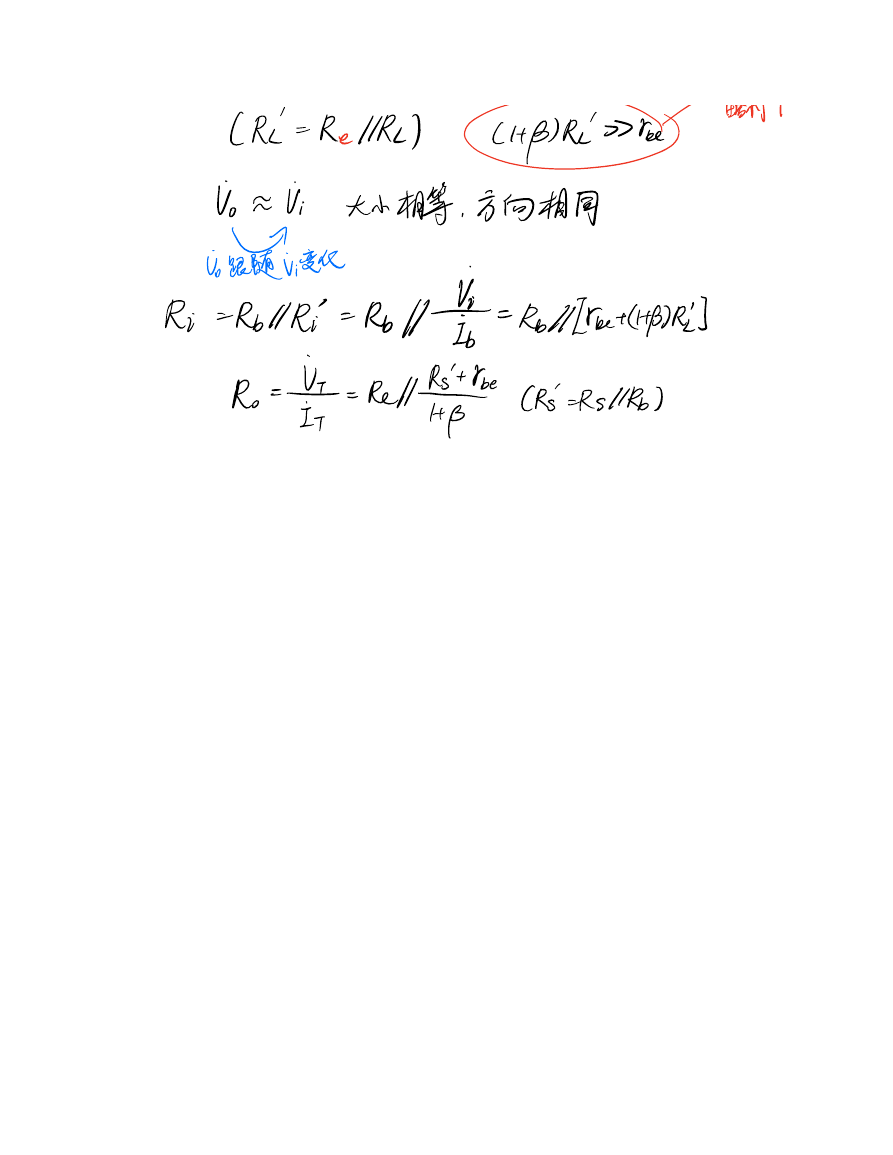 (R_L' = R_e // R_L) (1+β)R_L' >> r_be
V̇_o ≈ V̇_i 大小相等,方向相同
V̇_o跟随 V̇_i变化
R_i = R_b // R_i' = R_b // V̇_i / İ_b = R_b // [r_be + (1+β)R_L']
R_o = V̇_T / İ_T = R_e // (R_s' + r_be) / (1+β) (R_s' = R_s // R_b)